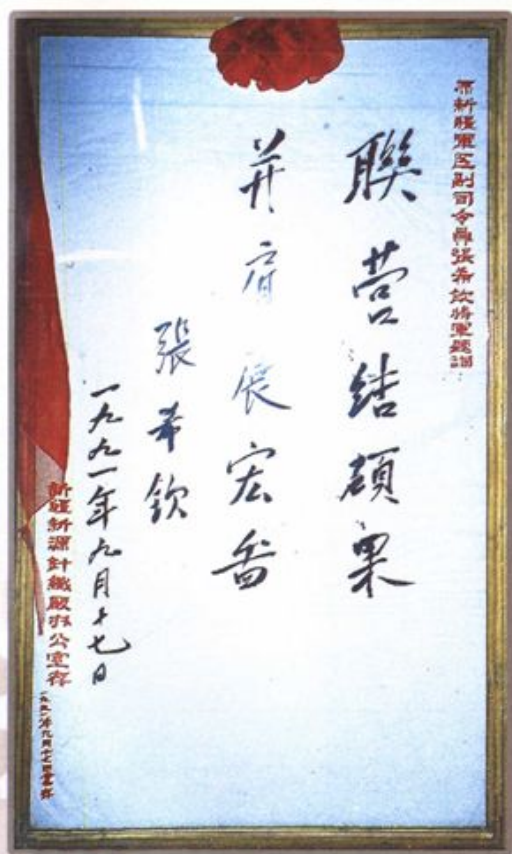 原新疆軍区副司令員張希欽將軍題詞
聯营结碩果
并肩展宏啚
張希欽
一九九一年九月十七日
新疆新源針織厰办公室存